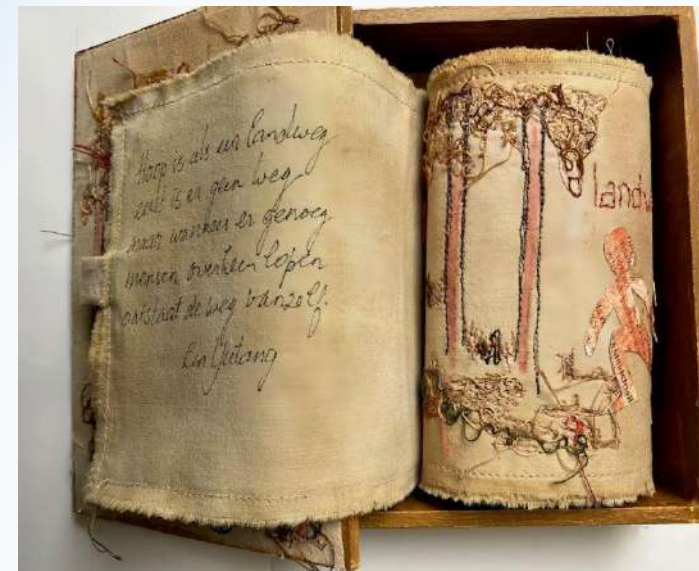 Hoop is als een landweg
eerst is er geen weg
maar wanneer er genoeg
mensen overheen lopen
ontstaat de weg vanzelf.
Lin Yutang
landw